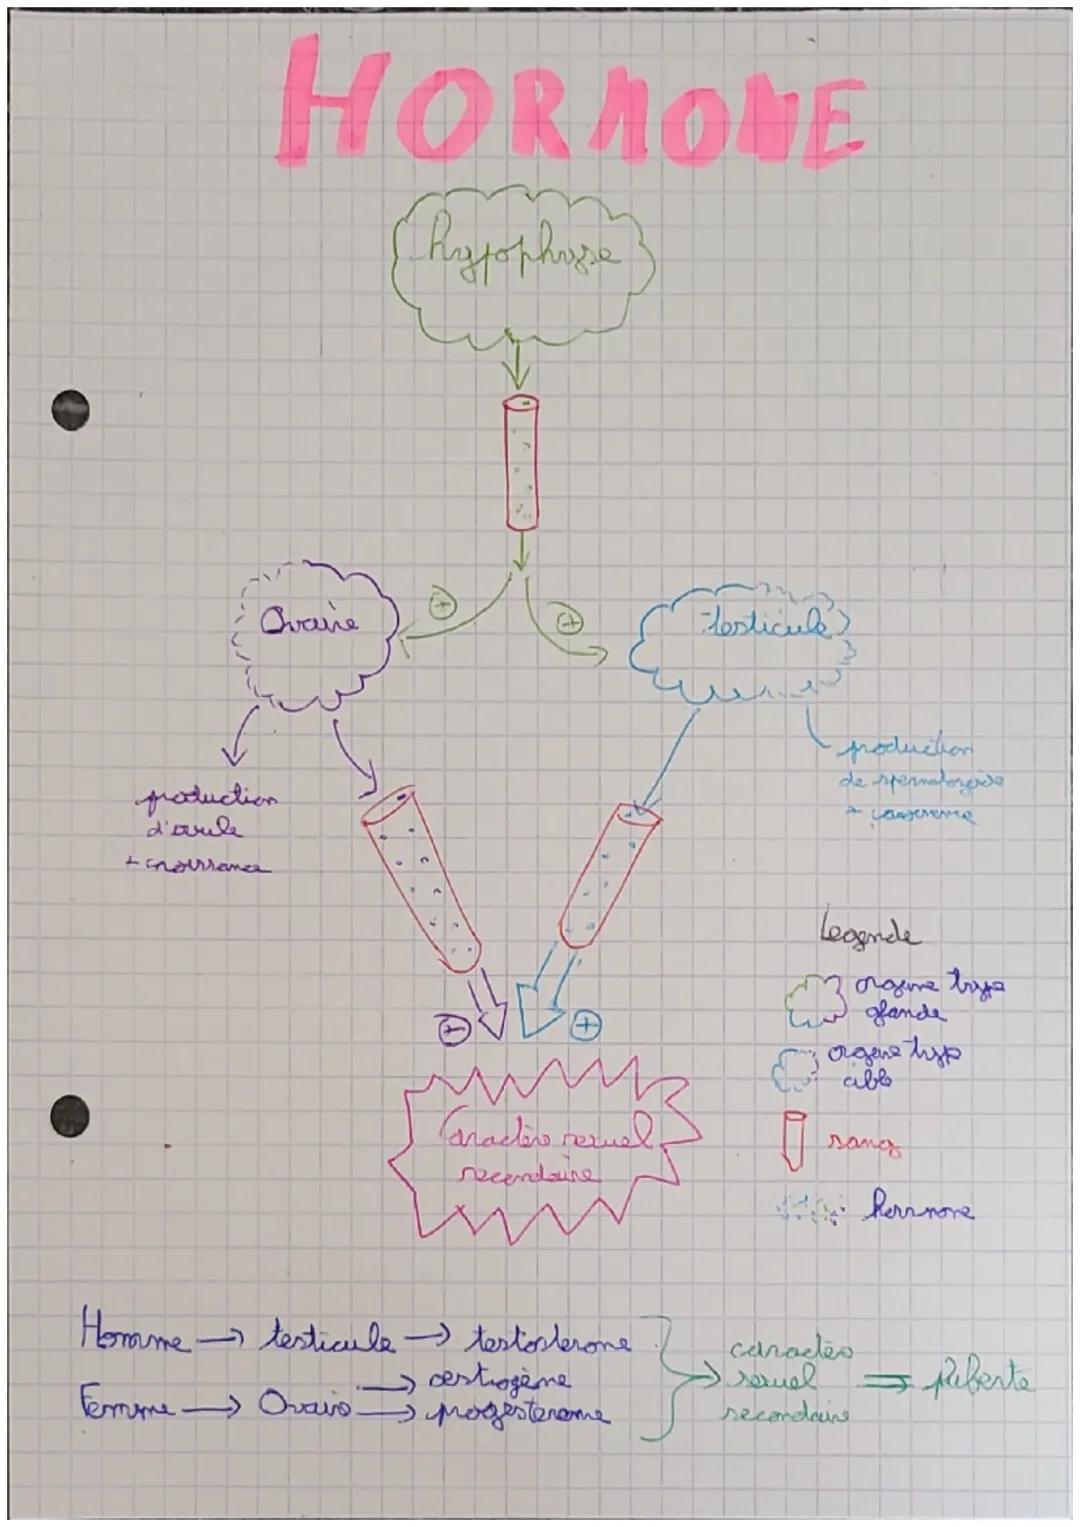 HORMONE
hypophyse
+
+
Ovaire
testicule
production
d'ovule
+ croissance
production
de spermatozoide
+ croissance
+
+
Caractère sexuel
secondaire
Legende
organe type
glande
organe typ
cible
sang
hormone
Homme → testicule → testosterone
→ œstrogène
Femme → Ovaire → progesterone
caractère
sexuel
secondaire
⇒ puberte